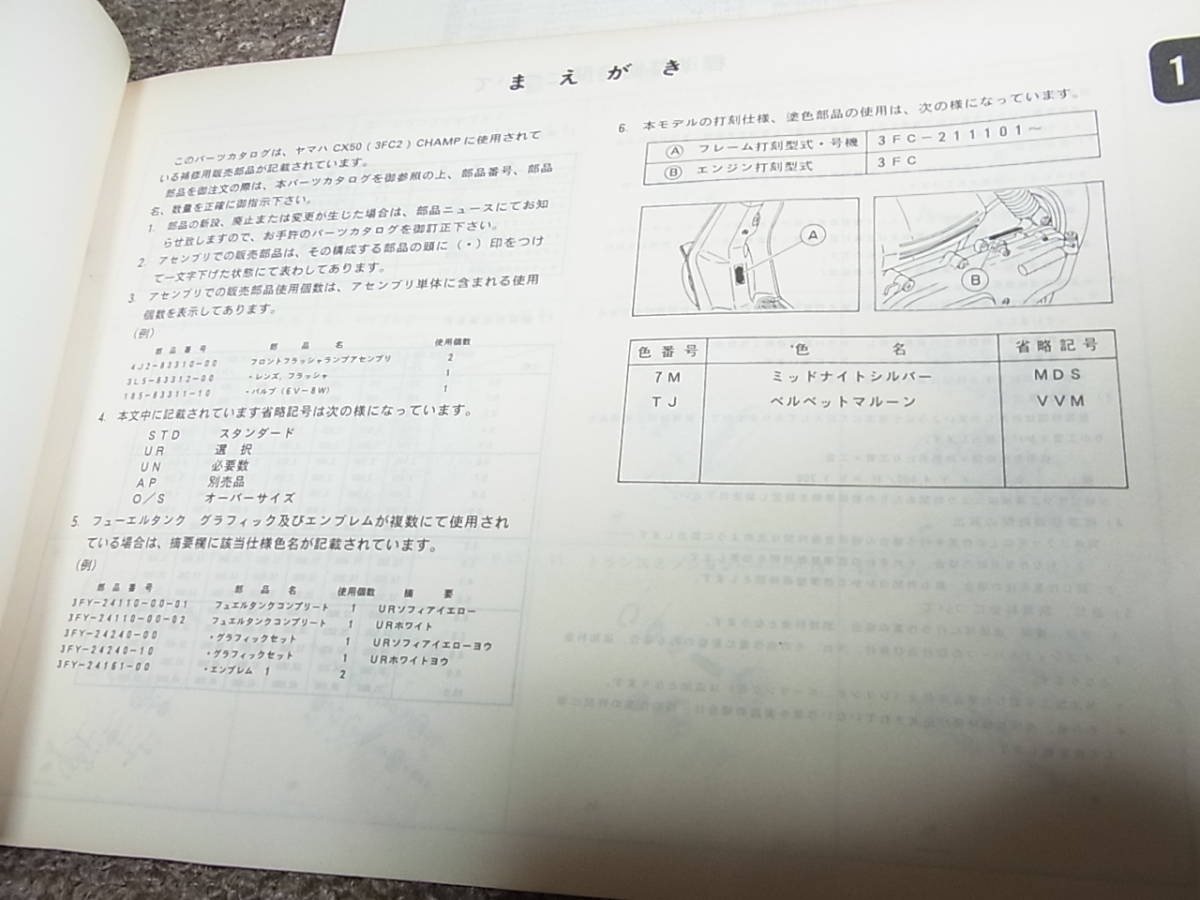 まえがき
1
このパーツカタログは、ヤマハ CX50 (3FC2) CHAMP に使用されて
いる補修用販売部品が記載されています。
部品を御注文の際は、本パーツカタログを御参照の上、部品番号、部品
名、数量を正確に御指示下さい。
1. 部品の新設、廃止または変更が生じた場合は、部品ニュースにてお知
らせ致しますので、お手許のパーツカタログを御訂正下さい。
2. アセンブリでの販売部品は、その構成する部品の頭に（・）印をつけ
て一文字下げた状態にて表わしてあります。
3. アセンブリでの販売部品使用個数は、アセンブリ単体に含まれる使用
個数を表示してあります。
(例)
部品番号 部品名 使用個数
4J2-83310-00 フロントフラッシャランプアセンブリ 2
3L5-83312-00 ・レンズ, フラッシャ 1
185-83311-10 ・バルブ (6V-8W) 1
4. 本文中に記載されています省略記号は次の様になっています。
STD スタンダード
UR 選択
UN 必要数
AP 別売品
O/S オーバーサイズ
5. フューエルタンク グラフィック及びエンブレムが複数にて使用され
ている場合は、摘要欄に該当仕様色名が記載されています。
(例)
部品番号 部品名 使用個数 摘要
3FY-24110-00-01 フュエルタンクコンプリート 1 URソフィアイエロー
3FY-24110-00-02 フュエルタンクコンプリート 1 URホワイト
3FY-24240-00 ・グラフィックセット 1 URソフィアイエローヨウ
3FY-24240-10 ・グラフィックセット 1 URホワイトヨウ
3FY-24161-00 ・エンブレム 1 2
6. 本モデルの打刻仕様、塗色部品の使用は、次の様になっています。
Ⓐ フレーム打刻型式・号機 3FC-211101～
Ⓑ エンジン打刻型式 3FC
A
B
色番号 色名 省略記号
7M ミッドナイトシルバー MDS
TJ ベルベットマルーン VVM